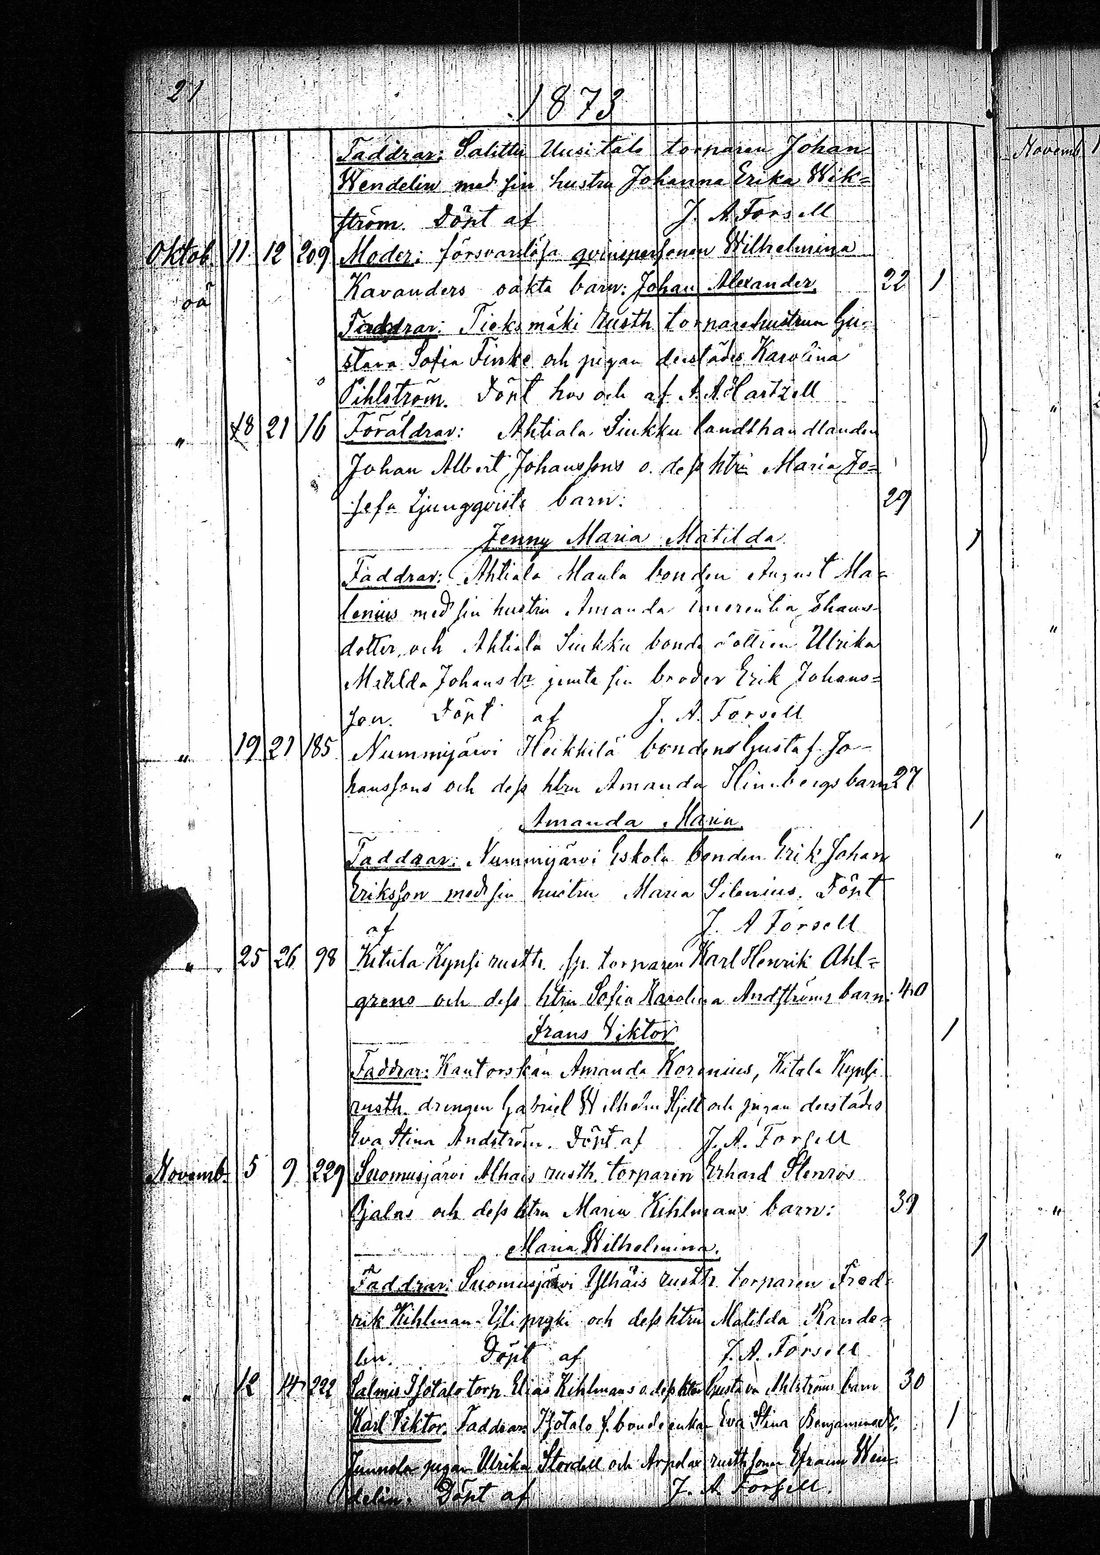 21
1873
Faddrar: Salittu Uusitalo torparen Johan
Wendelin med sin hustru Johanna Erika Wik=
ström. Döpt af J. A Forsell
Oktob. 11 12 209 Moder: försvarslösa qvinspersonen Wilhelmina
oä Kavanders oäkta barn: Johan Alexander. 22 1
Faddrar: Tieksmäki rusth. torparehustrun Gu-
stava Sofia Finke och pigan derstädes Karolina
Pihlström. Döpt hos och af A. A. Hartzell
" 18 21 16 Föräldrar: Ahtiala Siukku landthandlanden
Johan Albert Johanssons o. dess htru Maria Jo=
sefa Ljungqvists barn: 29
Jenny Maria Matilda 1
Faddrar: Ahtiala Maula bonden August Ma=
lenius med sin hustru Amanda Emerentia Johans-
dotter, och Ahtiala Siukku bonde dottren Ulrika
Matilda Johansdr jemte sin broder Erik Johans=
son. Döpt af J. A. Forsell
" 19 21 185 Nummijärvi Heikkilä bonden Gustaf Jo-
hanssons och dess htru Amanda Flinkbergs barn 27
Amanda Maria. 1
Faddrar: Nummijärvi Eskola bonden Erik Johan
Eriksson med sin hustru Maria Silenius. Döpt
af J. A Forsell
" 25 26 98 Kitula Kynsi rusth. sp. torparen Karl Henrik Ahl=
grens och dess htru Sofia Karolina Andströms barn: 40
Frans Viktor 1
Faddrar: Kantorskan Amanda Korenius, Kitula Kynsi
rusth. drengen Gabriel Wilhelm Hjelt och pigan derstädes
Eva Stina Andström. Döpt af J. A. Forsell
Novemb. 5 9 229 Suomusjärvi Alhais rusth. torparen Erhard Stenros
Ojalas och dess htru Maria Kihlmans barn: 39
Maria Wilhelmina. 1
Faddrar: Suomusjärvi Ylhäis rusth. torparen Fred-
rik Kihlman och dess htru Matilda Rande=
lin. Döpt af J. A. Forsell
" 12 14 222 Salmis Isotalo torp. Elias Kihlmans o. dess htru Gustava Ahlströms barn 30
Karl Viktor. Faddrar: Isotalo f. bondeenkan Eva Stina Benjaminsdr, 1
Junnola pigan Ulrika Stordell och Arpalax rusth.sonen Efraim Wen-
delin. Döpt af J. A. Forsell.
Novemb.